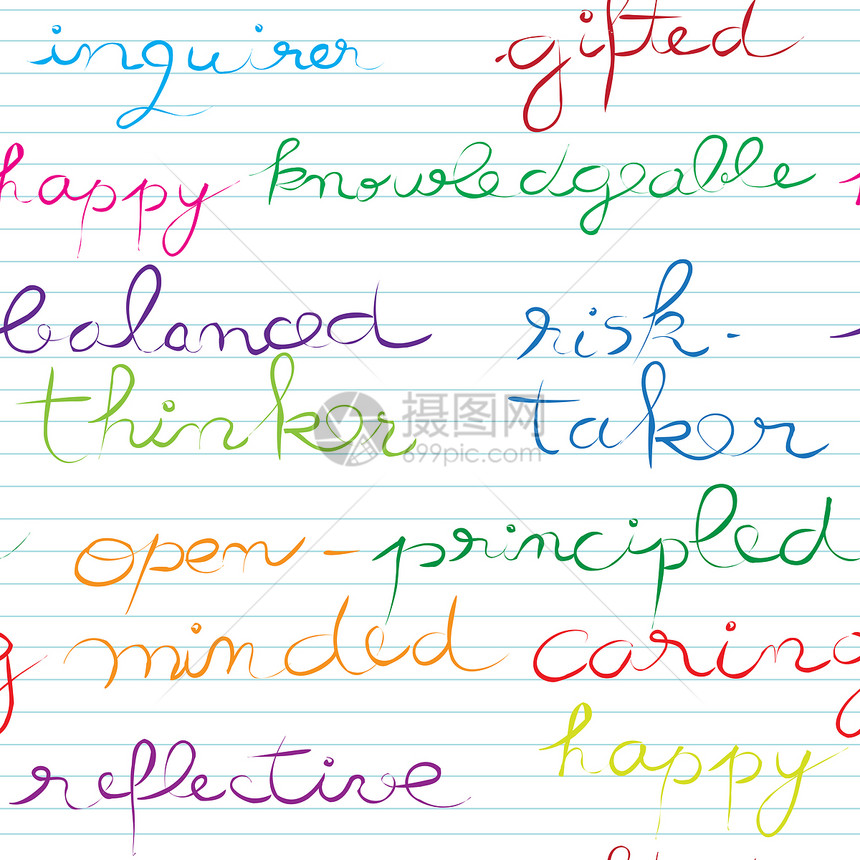 inquirer gifted
happy knowledgeable
balanced risk-
thinker taker
摄图网
699pic.com
open- principled
minded caring
happy
reflective